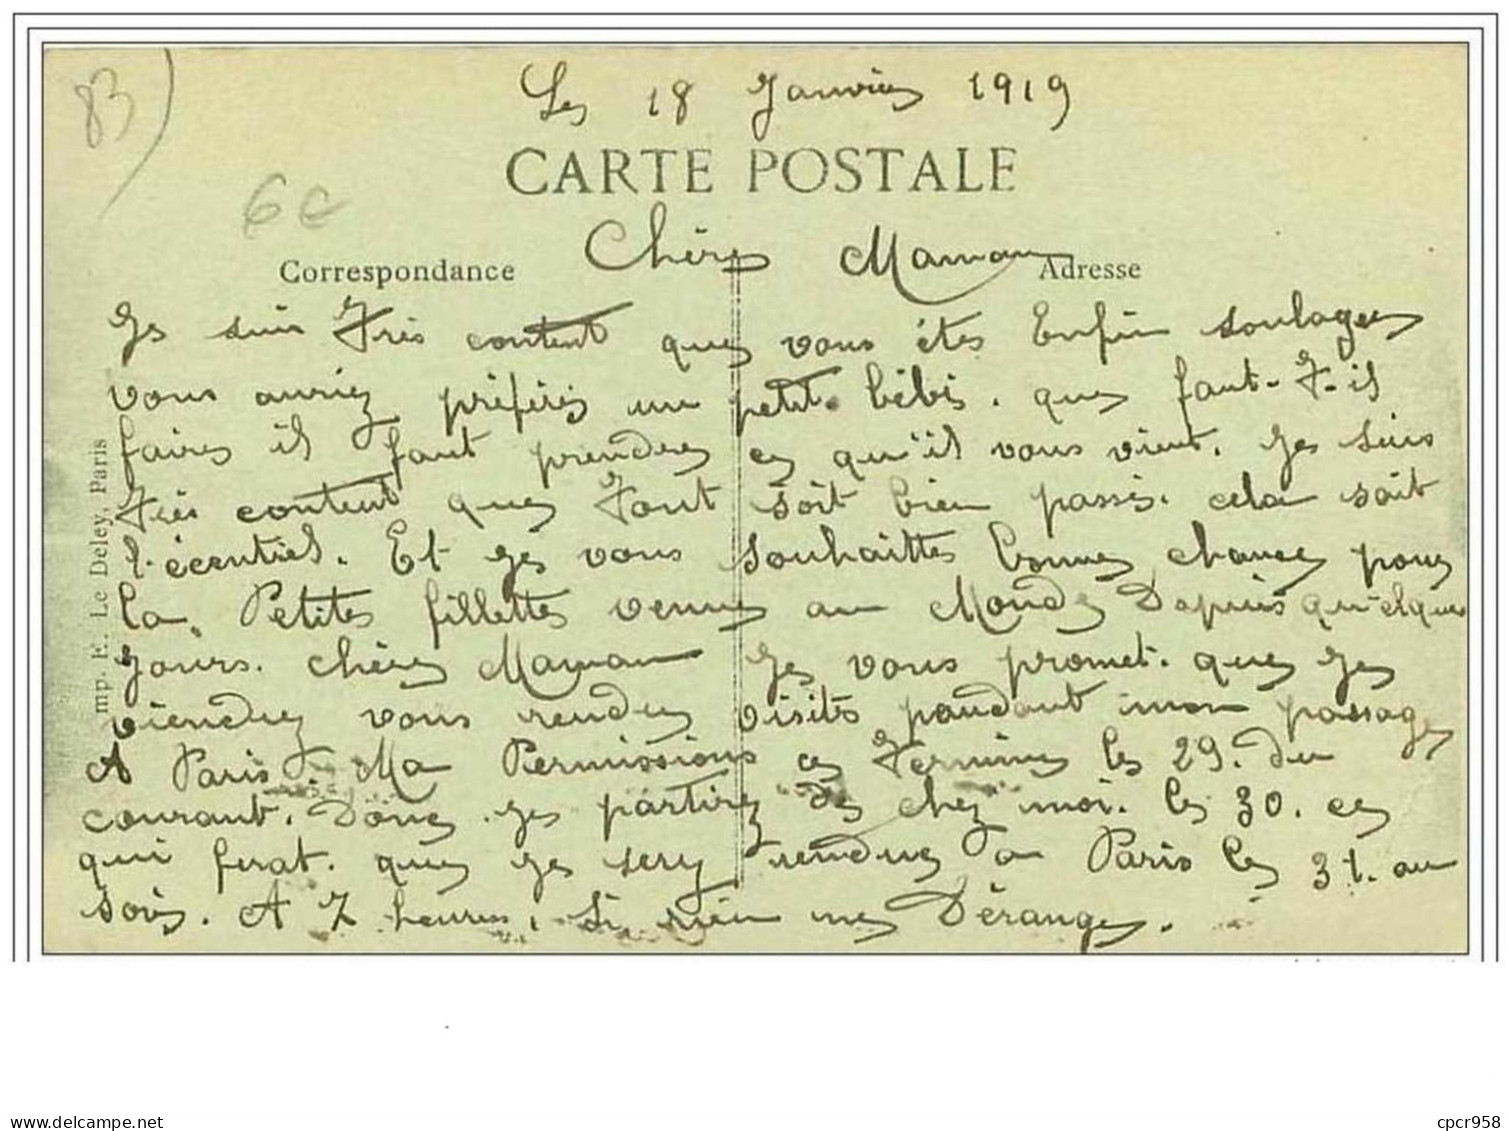 83)
Le 18 Janvier 1919
CARTE POSTALE
6e
Chère Maman
Correspondance
Adresse
Je suis Très content que vous êtes Enfin soulager
vous auriez préférés un petit bébis. que faut-T-il
faires il faut prendre ce qu'il vous vient. Je suis
Très content que Tout soit bien passé. cela soit
l'écentiel. Et je vous souhaittes bonne chance pour
la Petites fillettes venue au Monde Dapuis quelque
Jours. chère Maman Je vous promet. que je
viendrez vous rendre visites pandant mon passage
A Paris. Ma Permissions ce Termine le 29. du
courant. Donc je partirez de chez moi. le 30. ce
qui ferat. que je serez rendue a Paris le 31. au
soir. A 7 heures, Si rien me Dérange.
mp. E. Le Deley, Paris
www.delcampe.net
cpcr958